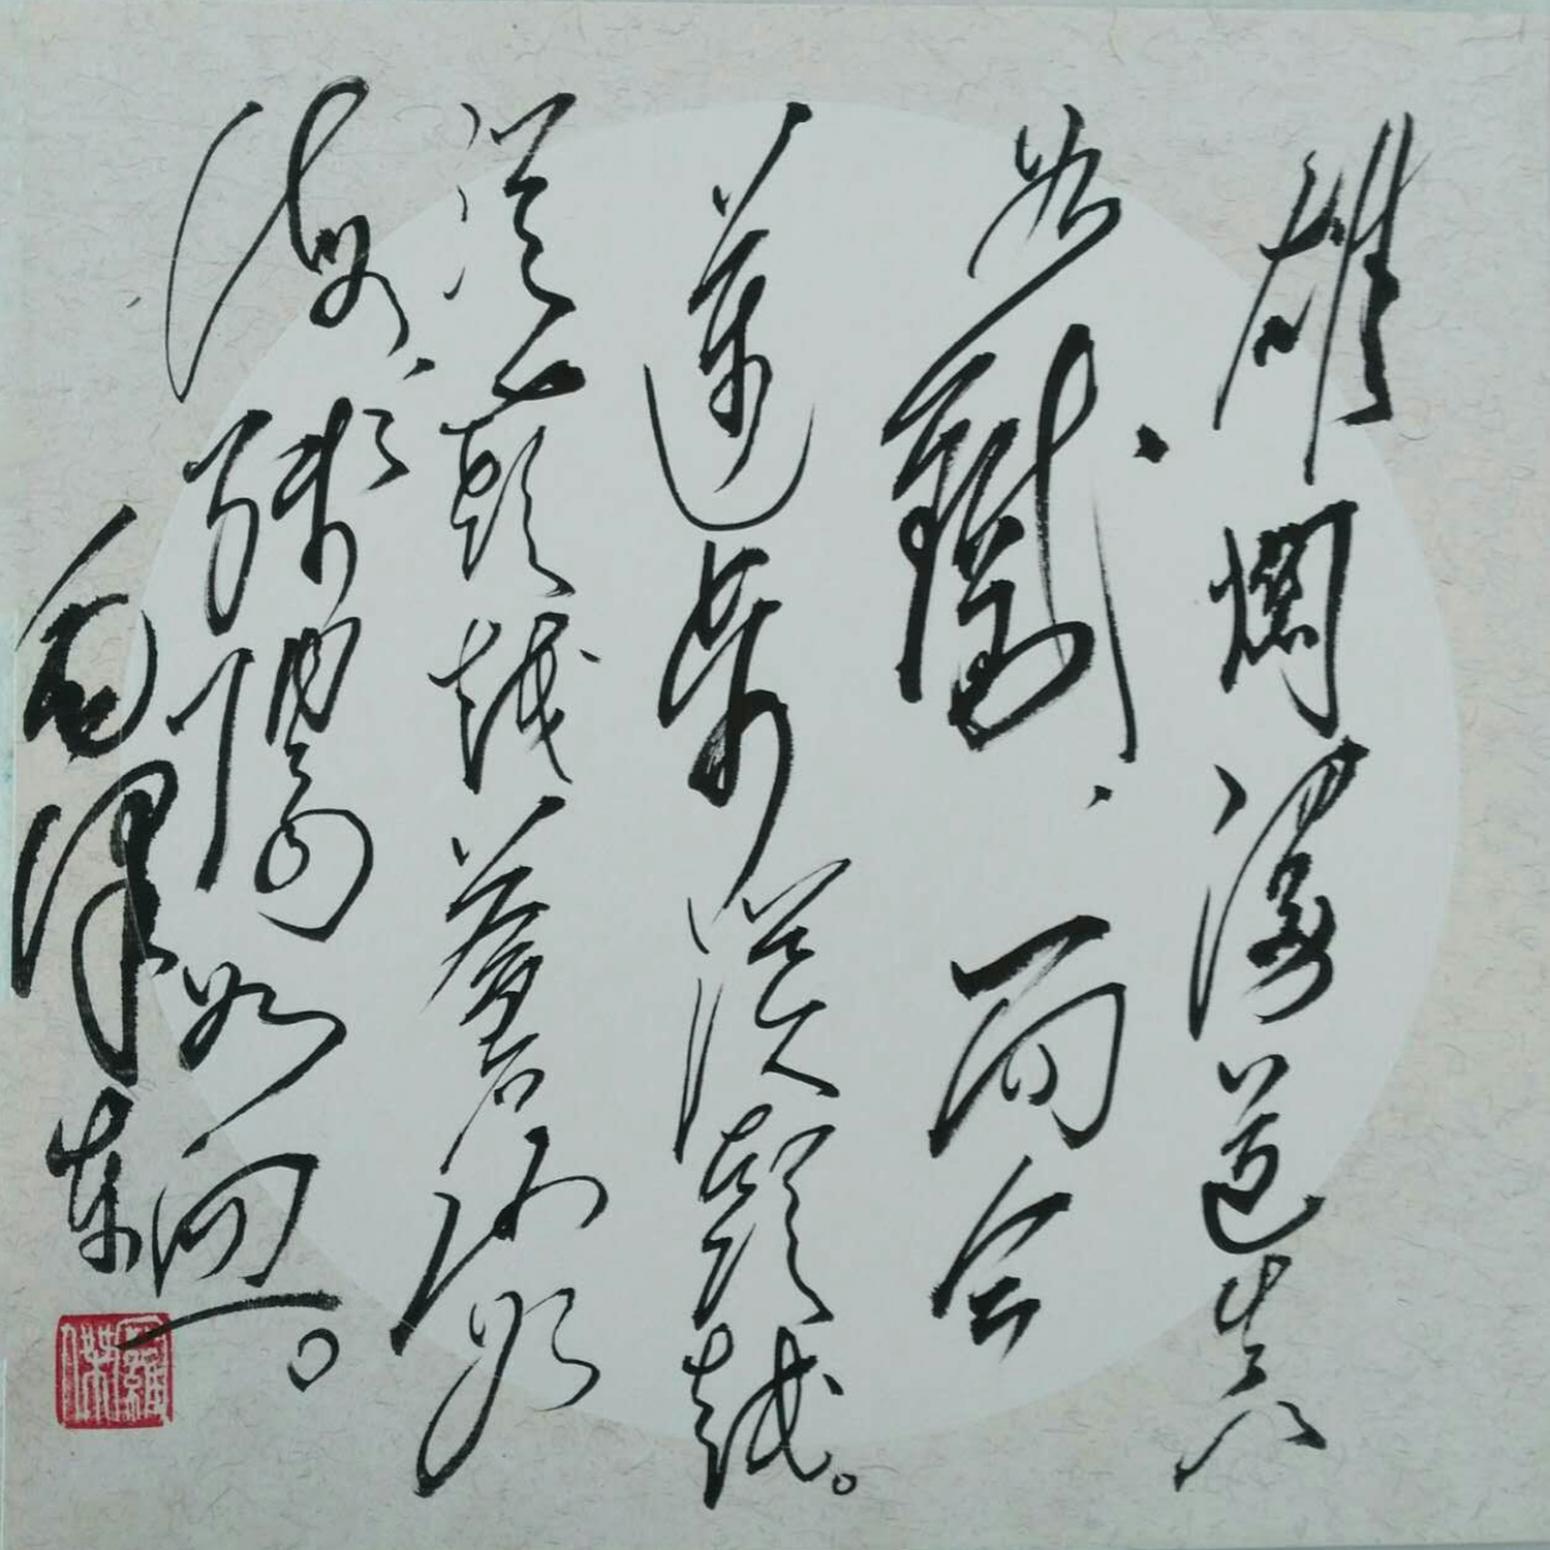 雄關漫道真
如鐵，而今
邁步從頭越。
從頭越蒼山如
海，殘陽如血。
毛澤東
羅傑